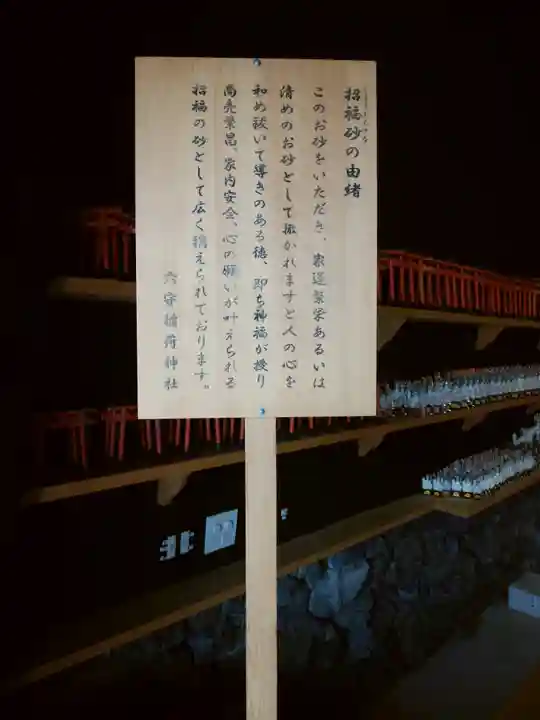 招福砂の由緒
このお砂をいただき、家運繁栄あるいは
清めのお砂として撒かれますと人の心を
和め祓いて導きのある徳、即ち神福が授り
商売繁昌、家内安全、心の願いが叶えられる
招福の砂として広く稱えられております。
穴守稲荷神社